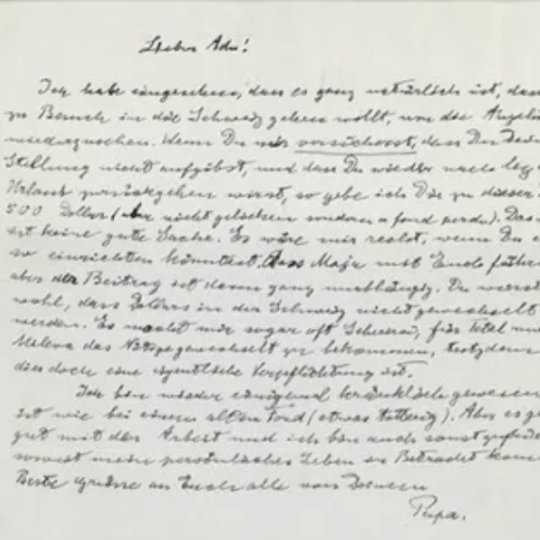 Lieber Adn!
Ich habe eingesehen, dass es ganz natürlich ist, dass
zu Besuch in die Schweiz gehen wollt, um die Angehö
wiederzusehen. Wenn Du mir versicherst, dass Du Dein
Stellung nicht aufgibst, und dass Du wieder nach
Urlaub zurückgehen wirst, so gebe ich Dir zu dieser
500 Dollar (aber nicht geliehen sondern a fond perdu). Das
ist keine gute Sache. Es wäre mir recht, wenn Du
so einrichten könntest, dass Maja mit Euch führe
aber der Beitrag ist davon ganz unabhängig. Du weisst
wohl, dass Dollars in der Schweiz nicht gewechselt
werden. Es macht mir sogar oft Scherei, für Tetel und
Mileva das Nötige gewechselt zu bekommen, trotzdem
dies doch eine eigentliche Verpflichtung ist.
Ich bin wieder kränklich gewesen
ist wie bei einem alten Ford (etwas). Aber es ge
gut mit der Arbeit und ich bin auch sonst zufrieden
soweit mein persönliches Leben in Betracht kom
Beste Grüsse an Euch alle von Deinem
Papa.